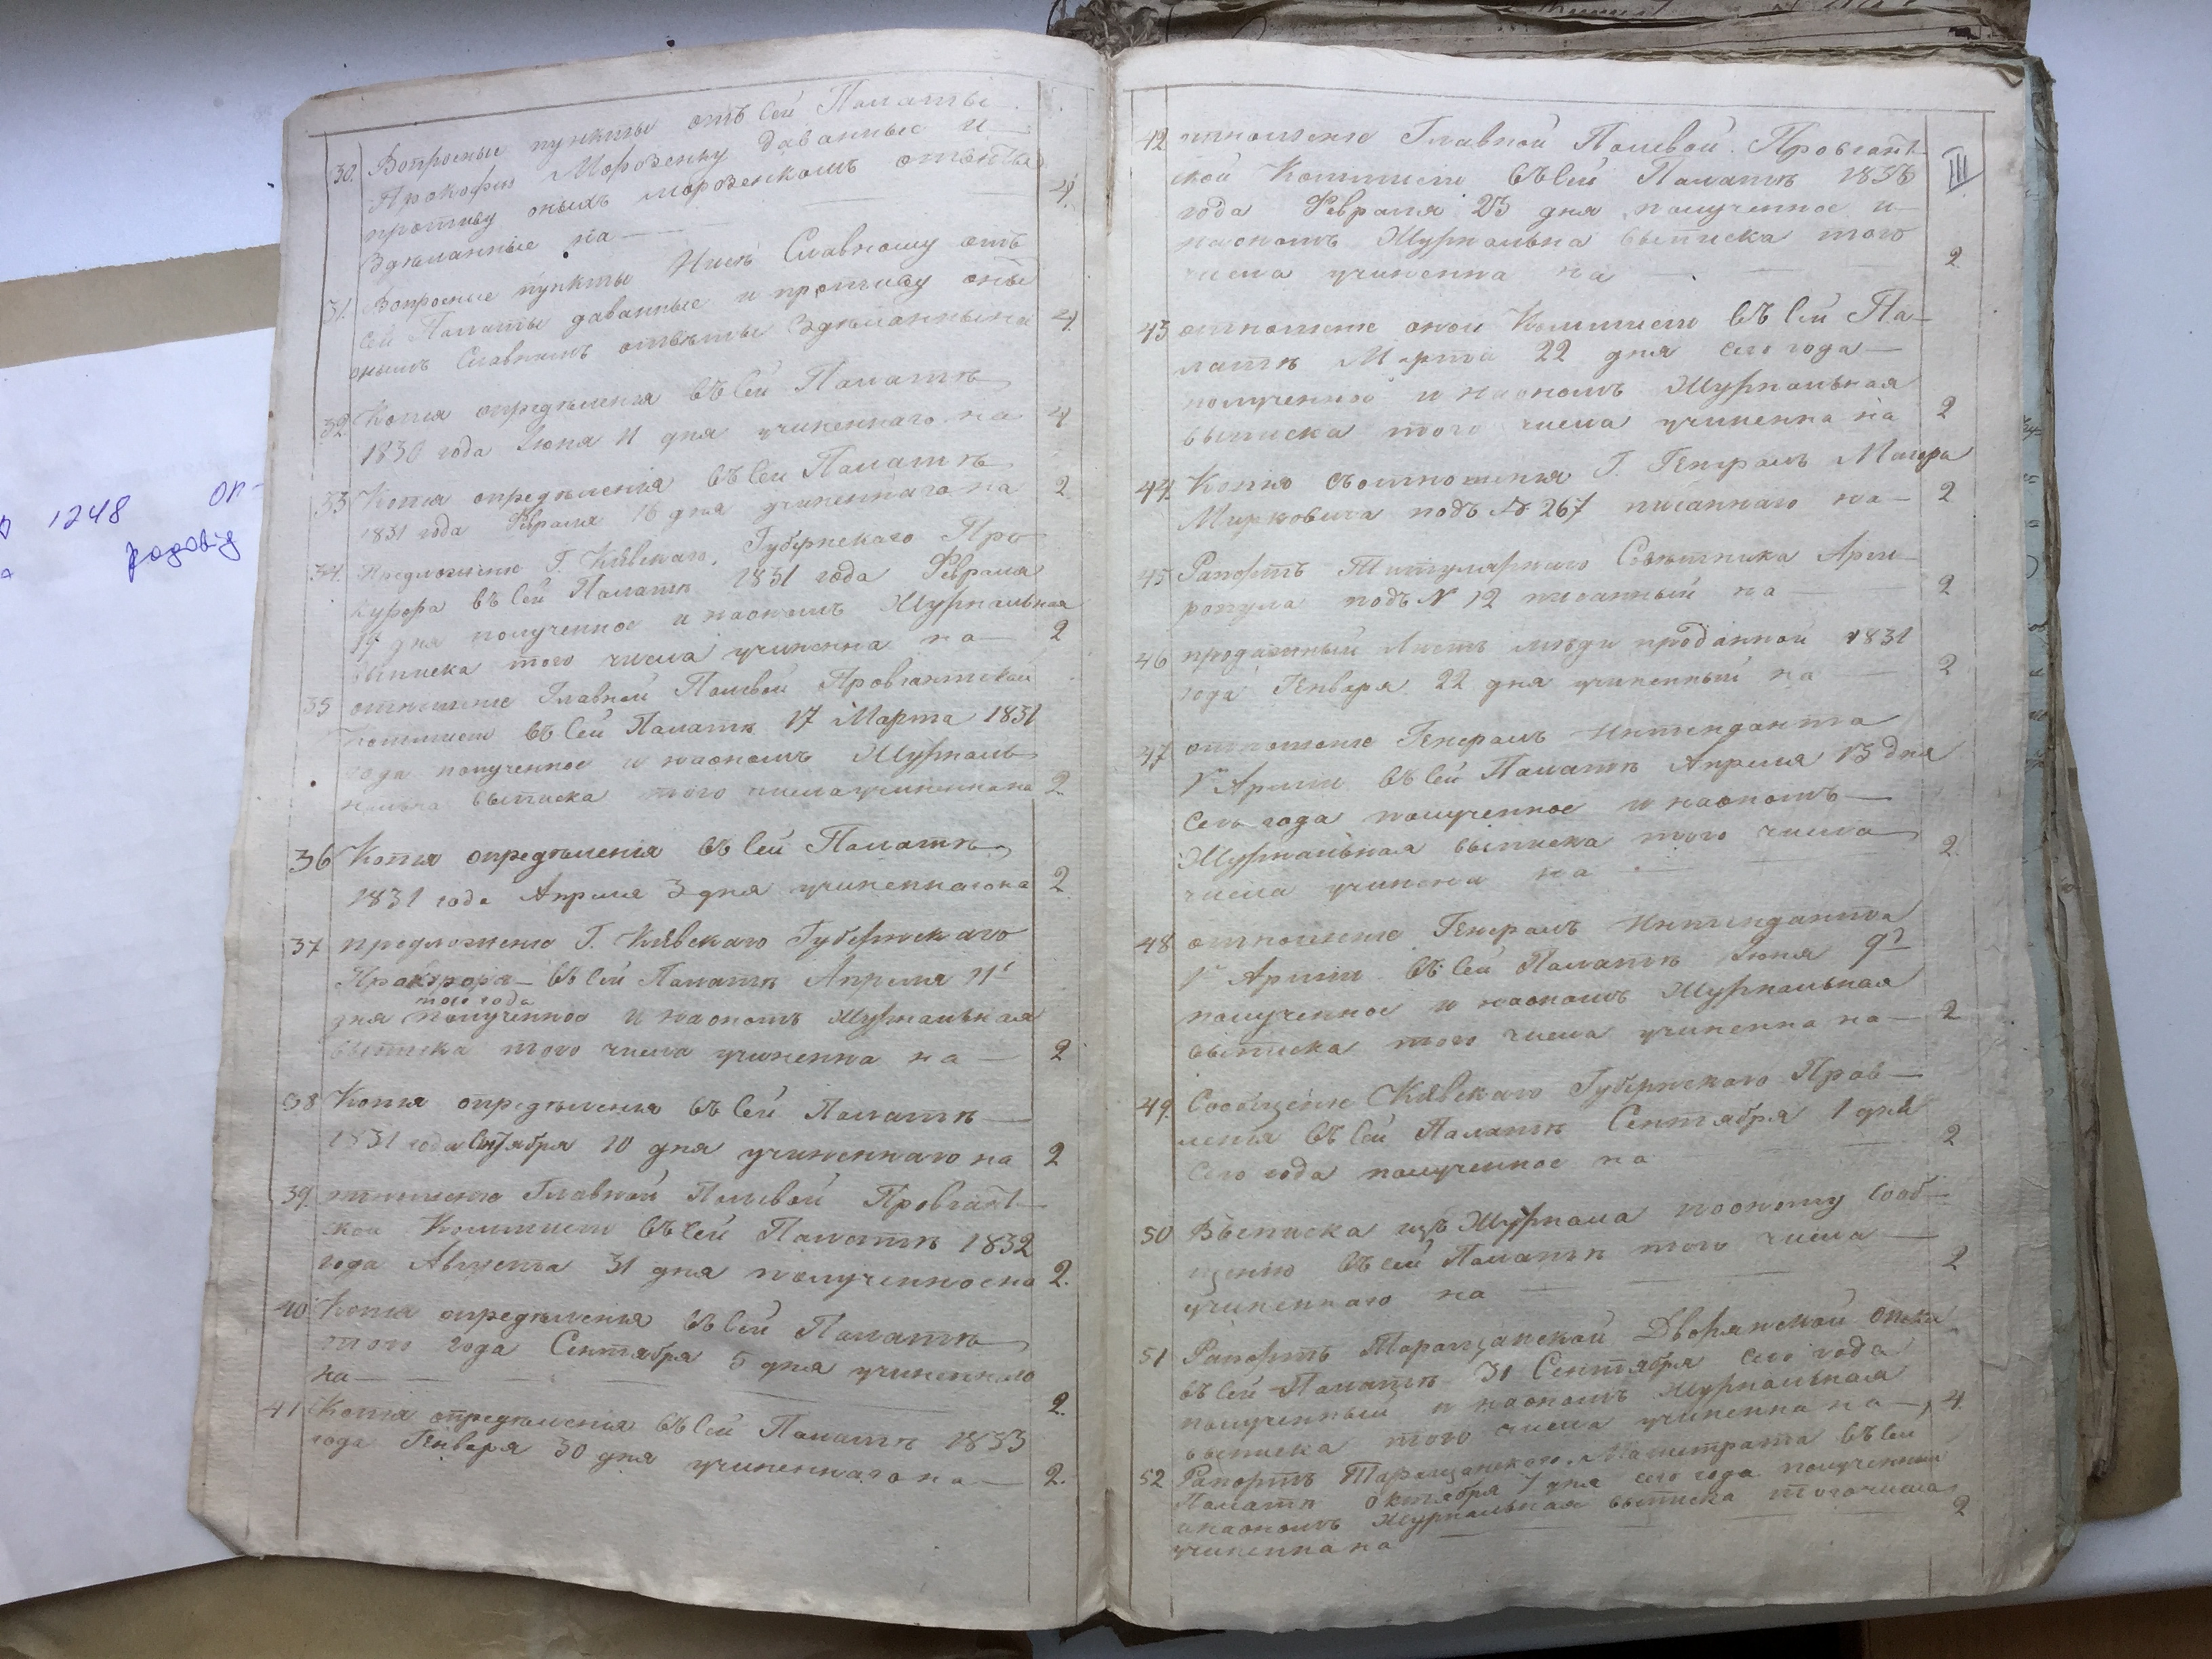 1248 оп-
родовід
30. Вопросные пункты отъ сей Палаты
Прокофію Морозенку даванные и
противу оныхъ морозенкомъ ответы
Здѣланные на — 4.
31. Вопросные пункты Славному отъ
сей Палаты даванные и противу оны
онымъ Славнымъ ответы Здѣланны на 4.
32. Копія опредѣленія въ сей Палатѣ
1830 года Іюня 11 дня учиненнаго на 4
33 Копія опредѣленія въ сей Палатѣ
1831 года Февраля 16 дня учиненнаго на 2.
34. Предложеніе Г. Кіевскаго Губернскаго Про
курора въ сей Палатѣ 1831 года Февраля
19 дня полученное и наономъ Журнальная
выписка того числа учиненна на — 2
35 отношеніе Главной Полевой Провіантской
Коммисіи въ сей Палатѣ 17 Марта 1831
года полученное и наономъ Журналь
выписка того числа учиненна на 2.
36 Копія опредѣленія въ сей Палатѣ
1831 года Апреля 3 дня учиненнаго на 2
37 предложеніе Г. Кіевскаго Губернскаго
Прокурора — въ сей Палатѣ Апреля 11
того года
дня полученное и наономъ Журнальная
выписка того числа учиненна на — 2
38 Копія опредѣленія въ сей Палатѣ —
1831 года Сентября 10 дня учиненнаго на 2
39. отношеніе Главной Полевой Провіант-
ской Коммисіи въ сей Палатѣ 1832
года Августа 31 дня полученное на 2.
40 Копія опредѣленія въ сей Палатѣ
того года Сентября 5 дня учиненнаго
на — 2.
41 Копія опредѣленія въ сей Палатѣ 1833
года Генваря 30 дня учиненнаго на — 2.
III
42 отношеніе Главной Полевой Провіант-
ской Коммисіи въ сей Палатѣ 1833
года Февраля 25 дня полученное и
наономъ Журнальна выписка того
числа учиненна на — 2
43 отношеніе оной Коммисіи въ сей Па-
латѣ Марта 22 дня сего года —
полученной и наономъ Журнальная
выписка того числа учиненна на 2
44. Копію съотношенія Г. Генералъ Маіора
Мирковича подъ № 267 писаннаго на — 2
45 Рапортъ Титулярнаго Совѣтника Ари-
ропула подъ N 12 писанный на — 2
46 продажный Листъ люди проданной 1831
года Генваря 22 дня учиненный на — 2
47 отношеніе Генералъ Интенданта
1й Арміи въ сей Палатѣ Апреля 13 дня
сего года полученное и наономъ —
Журнальная выписка того числа
числа учинена на — 2.
48 отношеніе Генералъ Интенданта
1й Арміи въ сей Палатѣ Іюня 9
полученное и наономъ Журнальная
выписка того числа учиненна на — 2
49. Сообщеніе Кіевскаго Губернскаго Прав-
ленія въ сей Палатѣ Сентября 1 дня
сего года полученное на — 2
50 Выписка изъ Журнала пооному сооб-
щенію въ сей Палатѣ того числа —
учиненнаго на — 2
51 Рапортъ Таращанской Дворянской опеки
въ сей Палатѣ 31 Сентября сего года
полученный и наономъ Журнальная
выписка того числа учиненна на — 4.
52 Рапортъ Таращанскаго Магистрата въ сей
Палатѣ октября 7 дня сего года полученный
инаономъ Журнальная выписка того числа
учиненна на — 2